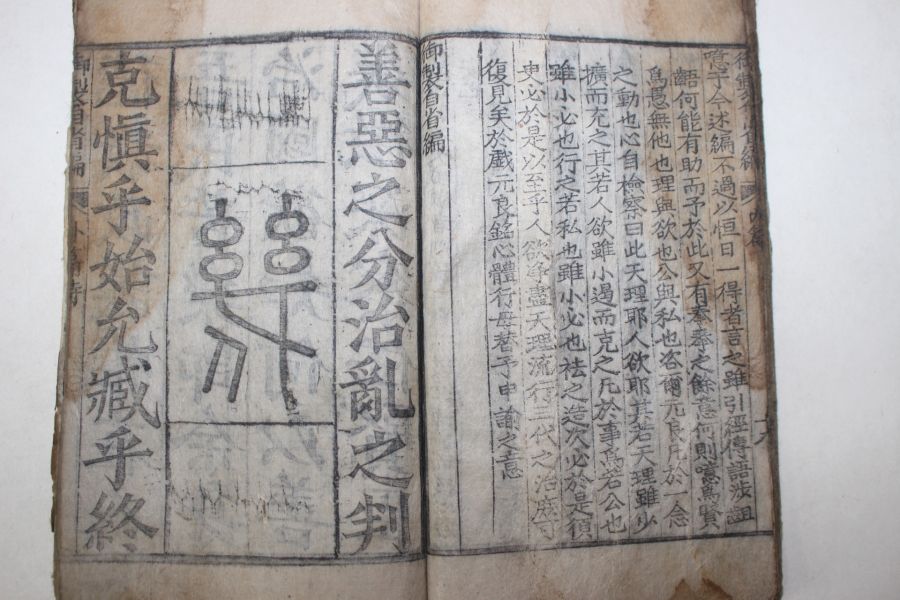 噫乎今述編不過以恒日一得者言之雖引經傳語涉詛
齬何能有助而予於此又有拳拳之餘意何則噫爲賢
爲愚無他也理與欲也公與私也咨爾元良凡於一念
之動也心自檢察曰此天理耶人欲耶其若天理雖少
擴而充之其若人欲雖小遏而克之凡於事爲若公也
雖小必也行之若私也雖小必也祛之造次必於是須
臾必於是以至乎人欲淨盡天理流行三代之治庶可
復見矣於戱元良銘心體行毋替予申諭之意
御製自省編
善惡之分治亂之判
幾
克愼乎始允臧乎終
御製自省編